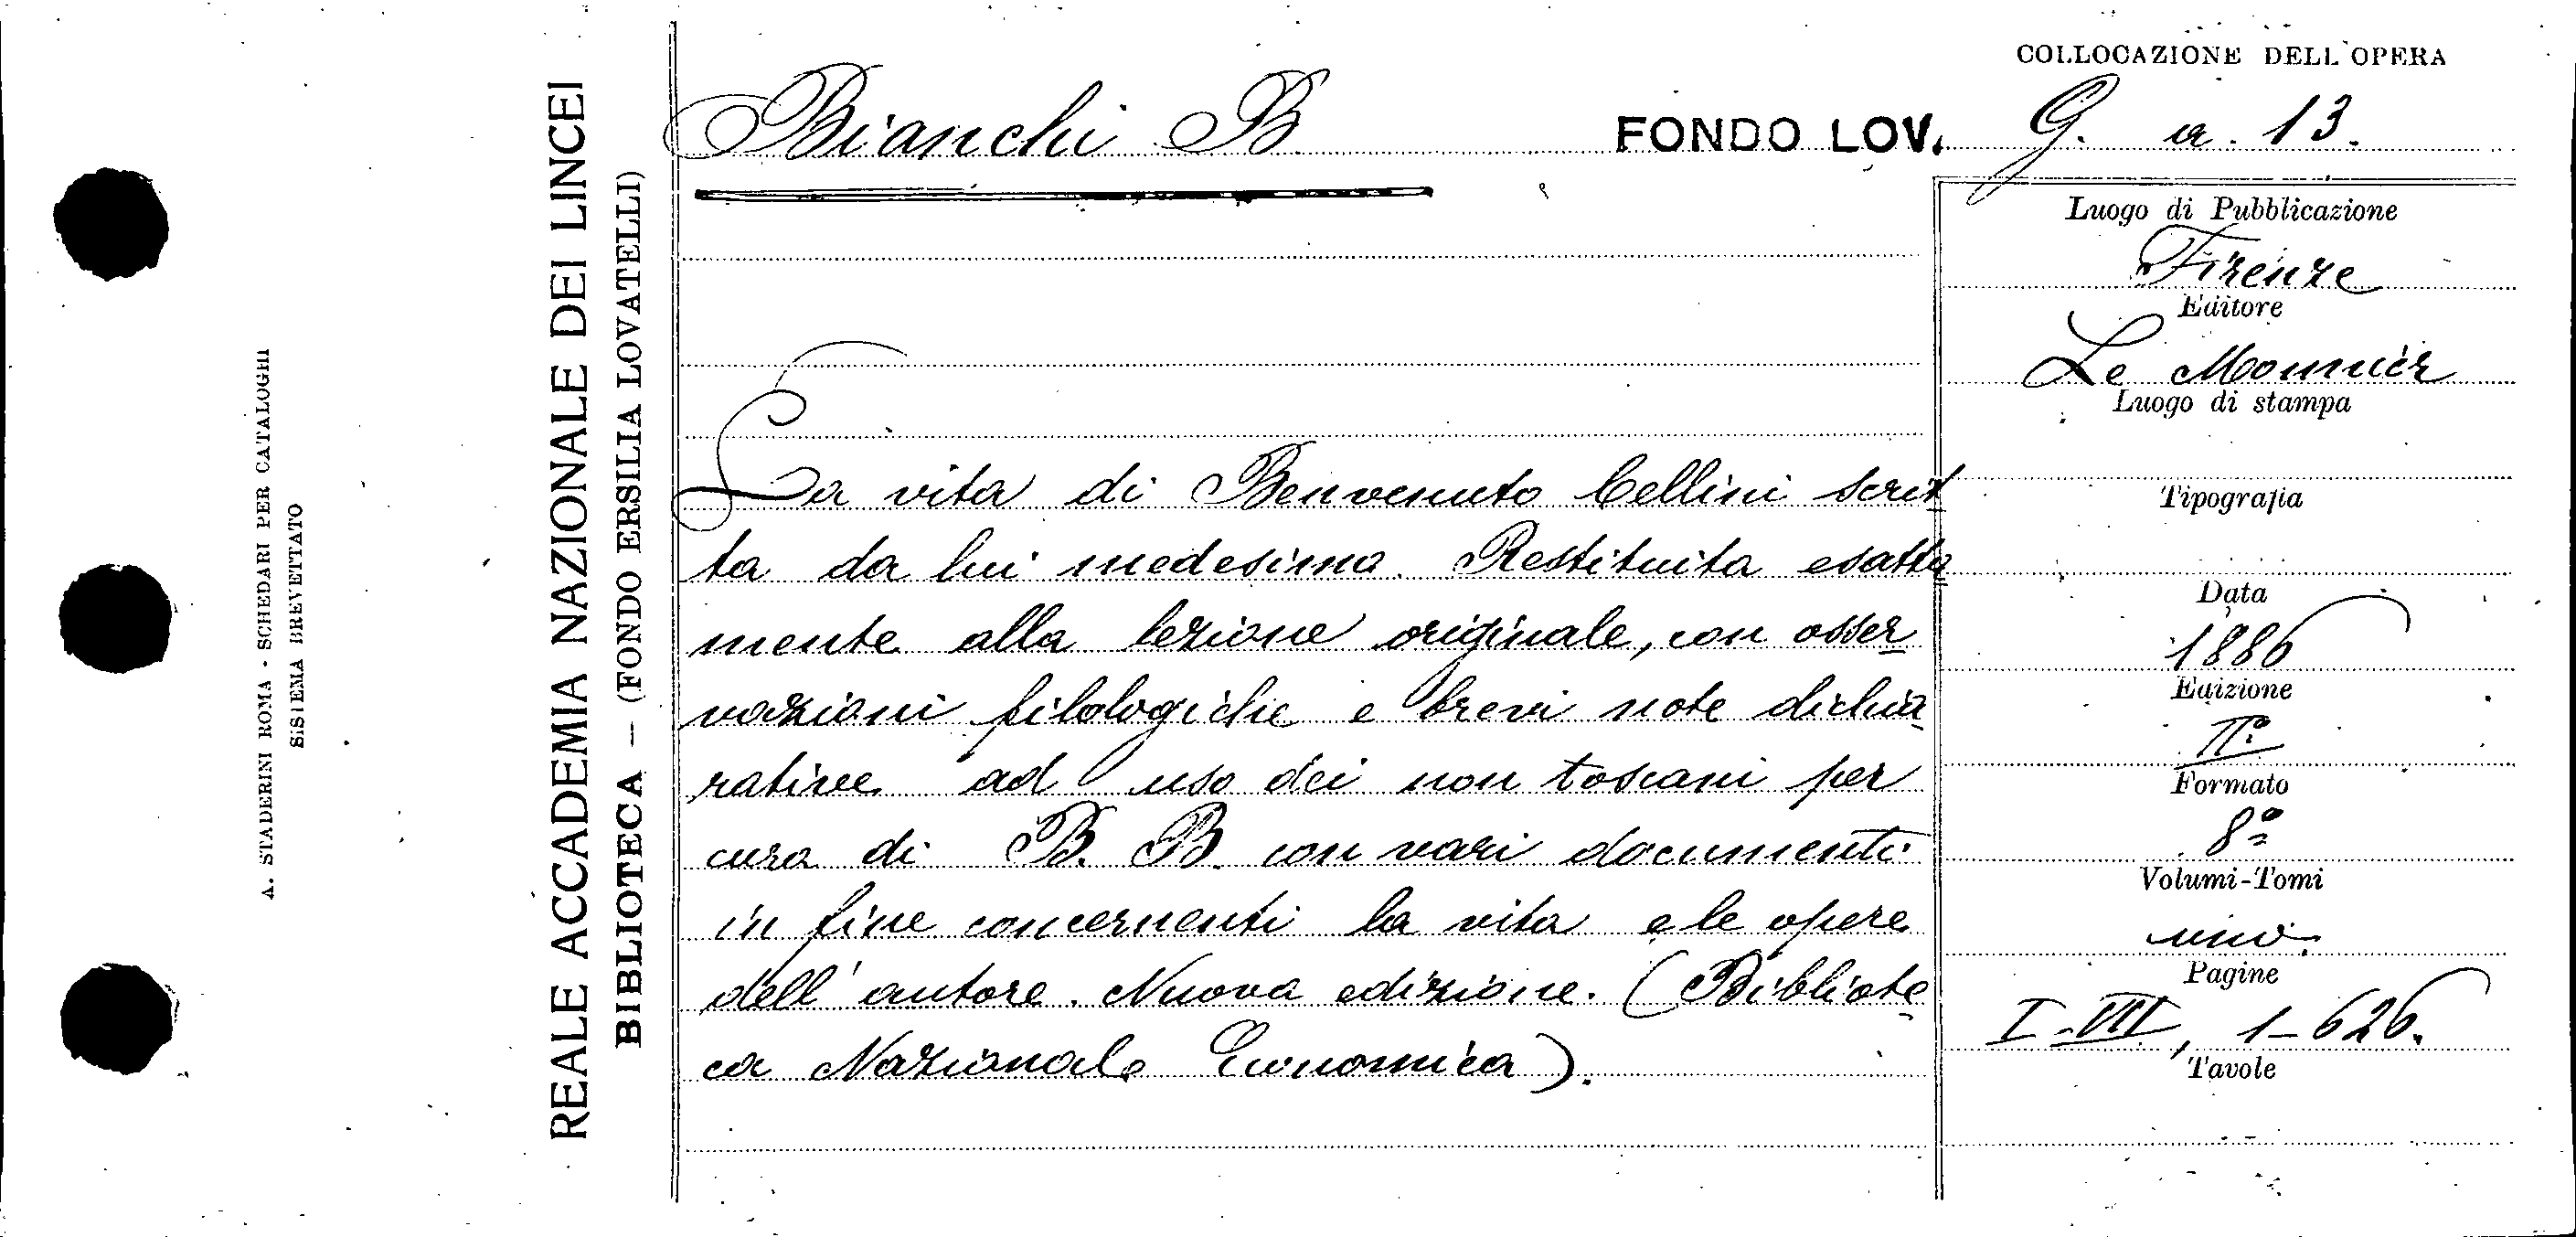 COLLOCAZIONE DELL'OPERA
Bianchi B
FONDO LOV. G. a. 13.
La vita di Benvenuto Cellini scrit
ta da lui medesimo. Restituita esatta
mente alla lezione originale, con osser
vazioni filologiche e brevi note dichia
rative ad uso dei non toscani per
cura di B. B. con vari documenti
in fine concernenti la vita e le opere
dell'autore. Nuova edizione. (Bibliote
ca Nazionale Economica).
Luogo di Pubblicazione
Firenze
Editore
Le Monnier
Luogo di stampa
Tipografia
Data
1886
Edizione
IIa
Formato
8º
Volumi-Tomi
uno.
Pagine
I-VII, 1-626.
Tavole
REALE ACCADEMIA NAZIONALE DEI LINCEI
BIBLIOTECA — (FONDO ERSILIA LOVATELLI)
A. STADERINI ROMA - SCHEDARI PER CATALOGHI
SISTEMA BREVETTATO